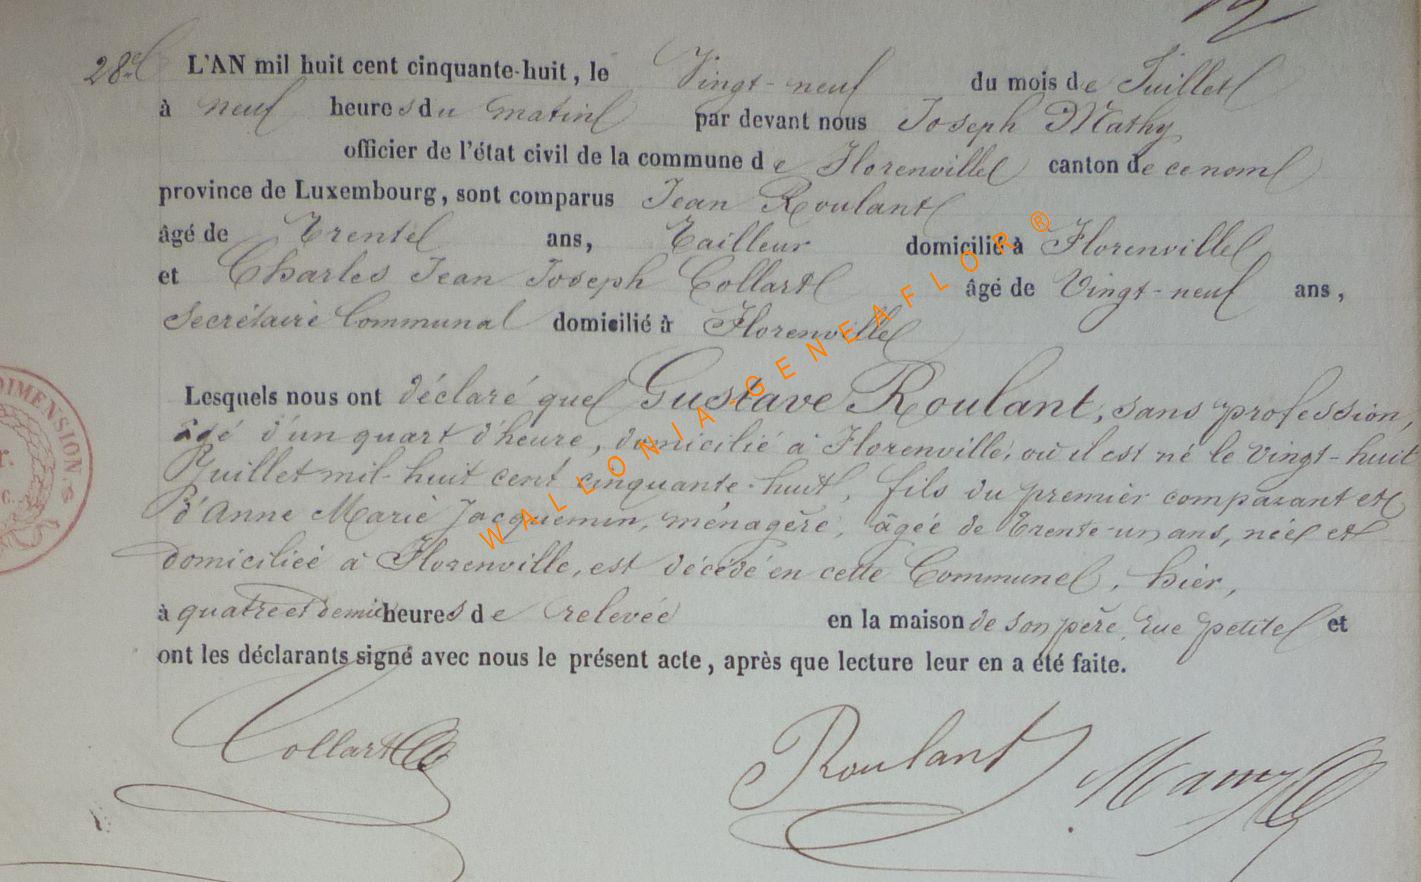 28e L'AN mil huit cent cinquante-huit, le Vingt-neuf du mois de Juillet
à neuf heures du matin par devant nous Joseph Mathy
officier de l'état civil de la commune de Florenville canton de ce nom
province de Luxembourg, sont comparus Jean Roulant
âgé de Trente ans, Tailleur domicilié à Florenville
et Charles Jean Joseph Collart âgé de Vingt-neuf ans,
Secrétaire Communal domicilié à Florenville
Lesquels nous ont déclaré que Gustave Roulant, sans profession,
âgé d'un quart d'heure, domicilié à Florenville, où il est né le Vingt-huit
Juillet mil-huit cent cinquante-huit, fils du premier comparant et
d'Anne Marie Jacquemin, ménagère, âgée de Trente-un ans, née et
domiciliée à Florenville, est décédé en cette Commune, hier,
à quatre et demie heures de relevée en la maison de son père, rue petite et
ont les déclarants signé avec nous le présent acte, après que lecture leur en a été faite.
Collart Roulant Mathy
DIMENSION
WALLONIA-GENEAFLOR®